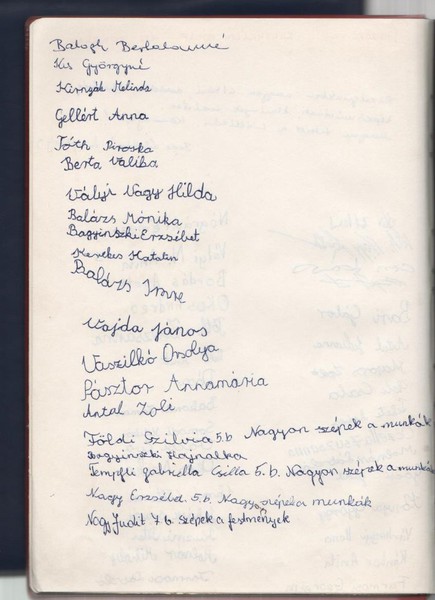 Balogh Bertalanné
Kis Györgyné
Hirnyák Melinda
Gellért Anna
Tóth Piroska
Berta Valika
Vályi Nagy Hilda
Balázs Mónika
Bagyinszki Erzsébet
Kerekes Katalin
Balázs Imre
Vajda János
Vaszilkó Orsolya
Pásztor Annamária
Antal Zoli
Földi Szilvia 5.b Nagyon szépek a munkák
Bagyinszki Hajnalka
Tempfli Gabriella Csilla 5. b. Nagyon szépek a munkák
Nagy Erzsébet 5. b. Nagyon szépek a munkák
Nagy Judit 7. b szépek a festmények